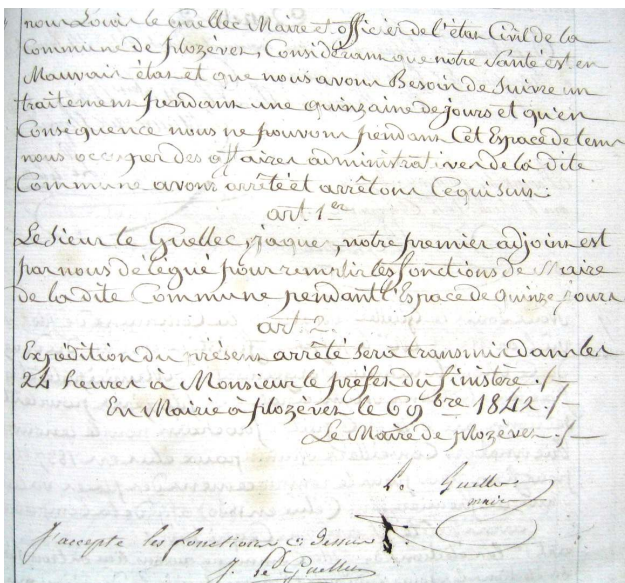 nous Louis le Guellec Maire et officier de l'état Civil de la
Commune de plozévet, Considérant que notre Santé est en
Mauvais état et que nous avons Besoin de Suivre un
traitement pendant une quinzaine de jours et qu'en
Conséquence nous ne pouvons pendant Cet Espace de tems
nous occuper des affaires administratives de la dite
Commune avons arrêté et arrêtons Ce qui suit:
art. 1er
Le Sieur le Guellec, jaques, notre premier adjoint est
par nous délégué pour remplir les fonctions de Maire
de la dite Commune pendant l'Espace de quinze jours
art. 2.
Expédition du présent arrêté Sera transmis dans les
24 heures à Monsieur le préfet du finistère ./-
En Mairie à plozévet le 6 9bre 1842 ./-
Le Maire de plozévet ./-
L. Guellec
maire
J'accepte les fonctions ci dessus
J. Le Guellec